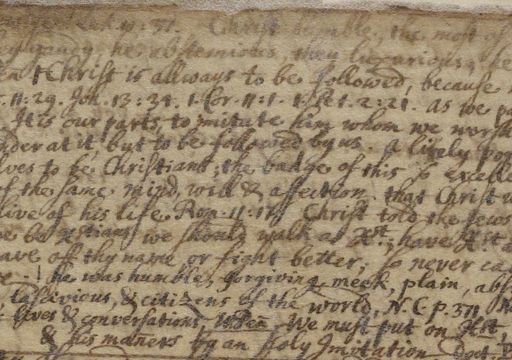 Christ humble, the most of
he abstemious, they luxurious, he
t Christ is allways to be followed, because
11:29. Joh. 13:34. 1 Cor. 11:1. 1 Pet. 2:21. as we
It is our parts, to imitate him whom we worsh
nder at it, but to be followed by us. a lively
lves to be Christians; the badge of this so excelle
of the same mind, will & affection. that Christ
live of his life. Rom. 11:17. Christ told the Jews
we be xstians we should walk as Xst; have Xst
eave off thy name or fight better, so never
he was humble, forgiving, meek, plain, abs
lascivious, & citizens of the world, N.C. p. 371
lives & conversations We must put on Xst,
& his maners by an holy Imitation